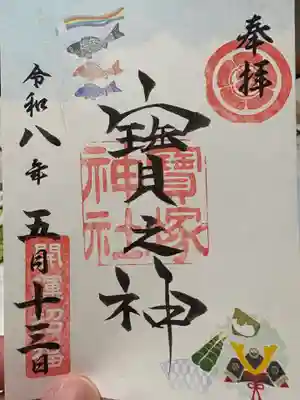 奉拝
寶之神
寶塚
神社
令和八年五月十三日
開運招福